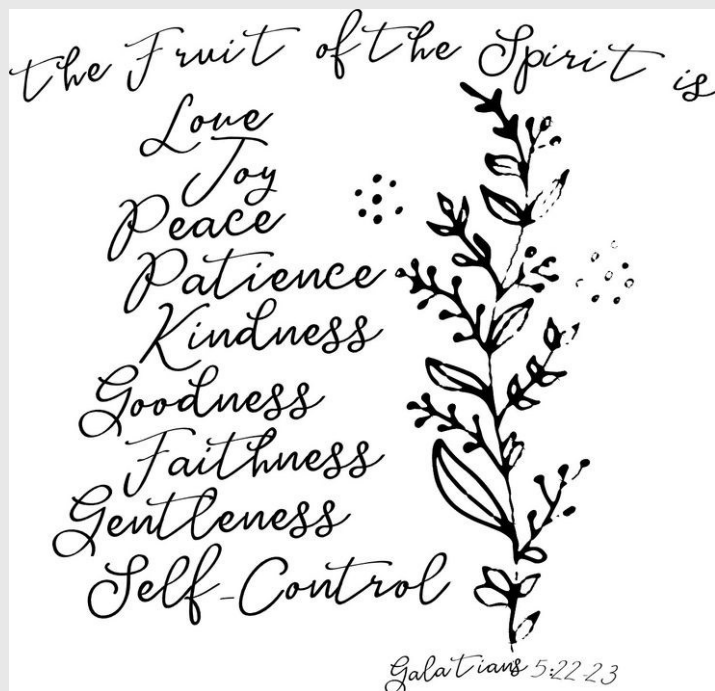 the Fruit of the Spirit is
Love
Joy
Peace
Patience
Kindness
Goodness
Faithness
Gentleness
Self-Control
Galatians 5:22-23